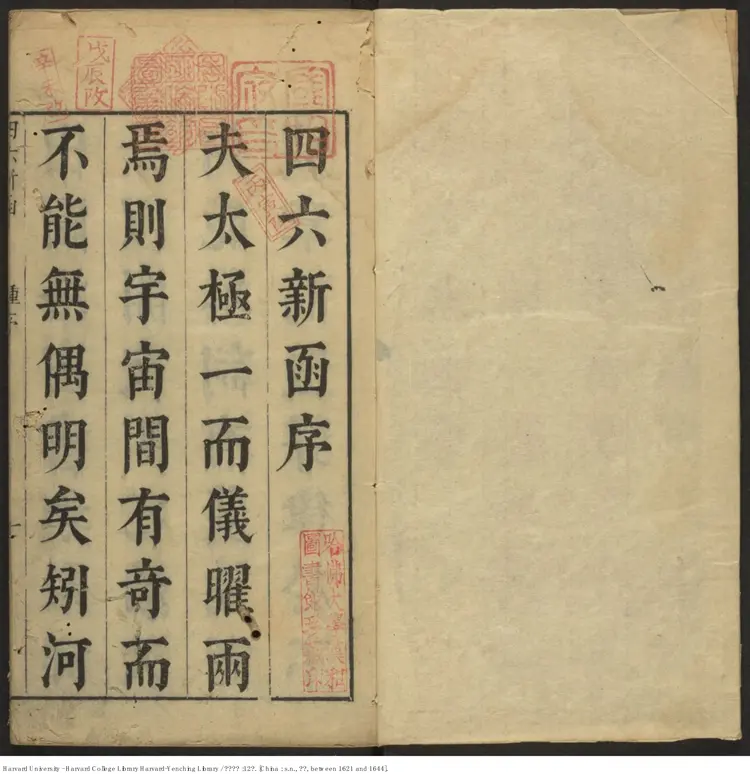 四六新函序
夫太極一而儀曜兩
焉則宇宙間有奇而
不能無偶明矣矧河
戊辰改
哈佛大學漢和
圖書館珍藏印
Harvard University - Harvard College Library Harvard-Yenching Library / ???? :12?. [China : s.n., ??, between 1621 and 1644].